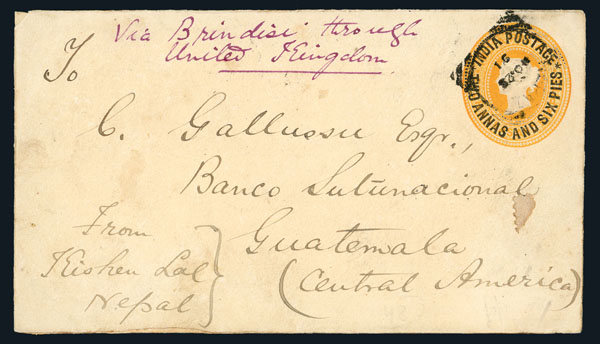 Via Brindisi through
United Kingdom
To
C. Gallussu Esqr.,
Banco Suturnacional
Guatemala
(Central America)
From
Kishen Lal
Nepal
INDIA POSTAGE
TWO ANNAS AND SIX PIES